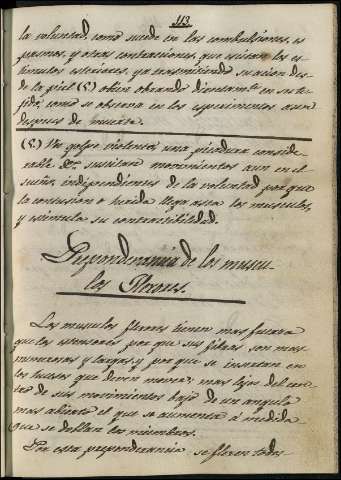 113.
la voluntad, como sucede en las combulsiones, es
pasmos, y otras contracciones, que esitan los es
timulos esteriores, ya transmitiendo su acion des-
de la piel (2.) obien obrando directamte. en su te-
jido, como se observa en los esperimentos aun
despues de muerto.
(2.) Un golpe violento, una picadura conside-
rable &a. suscitara movimientos aun en el
sueño, independientes de la voluntad por que
la concusion o herida llega asta los musculos,
y estimula su contractibilidad.
Preponderancia de los muscu-
los Flexores.
Los musculos flexores tienen mas fuerza
que los estensores por que sus fibras son mas
numerosas y largas, y por que se insertan en
los huesos que deven mover, mas lejos del cen-
tro de sus movimientos bajo de un angulo
mas abierto el que se aumenta á medida
que se doblan los miembros.
Por esta preponderancia se flexan todos